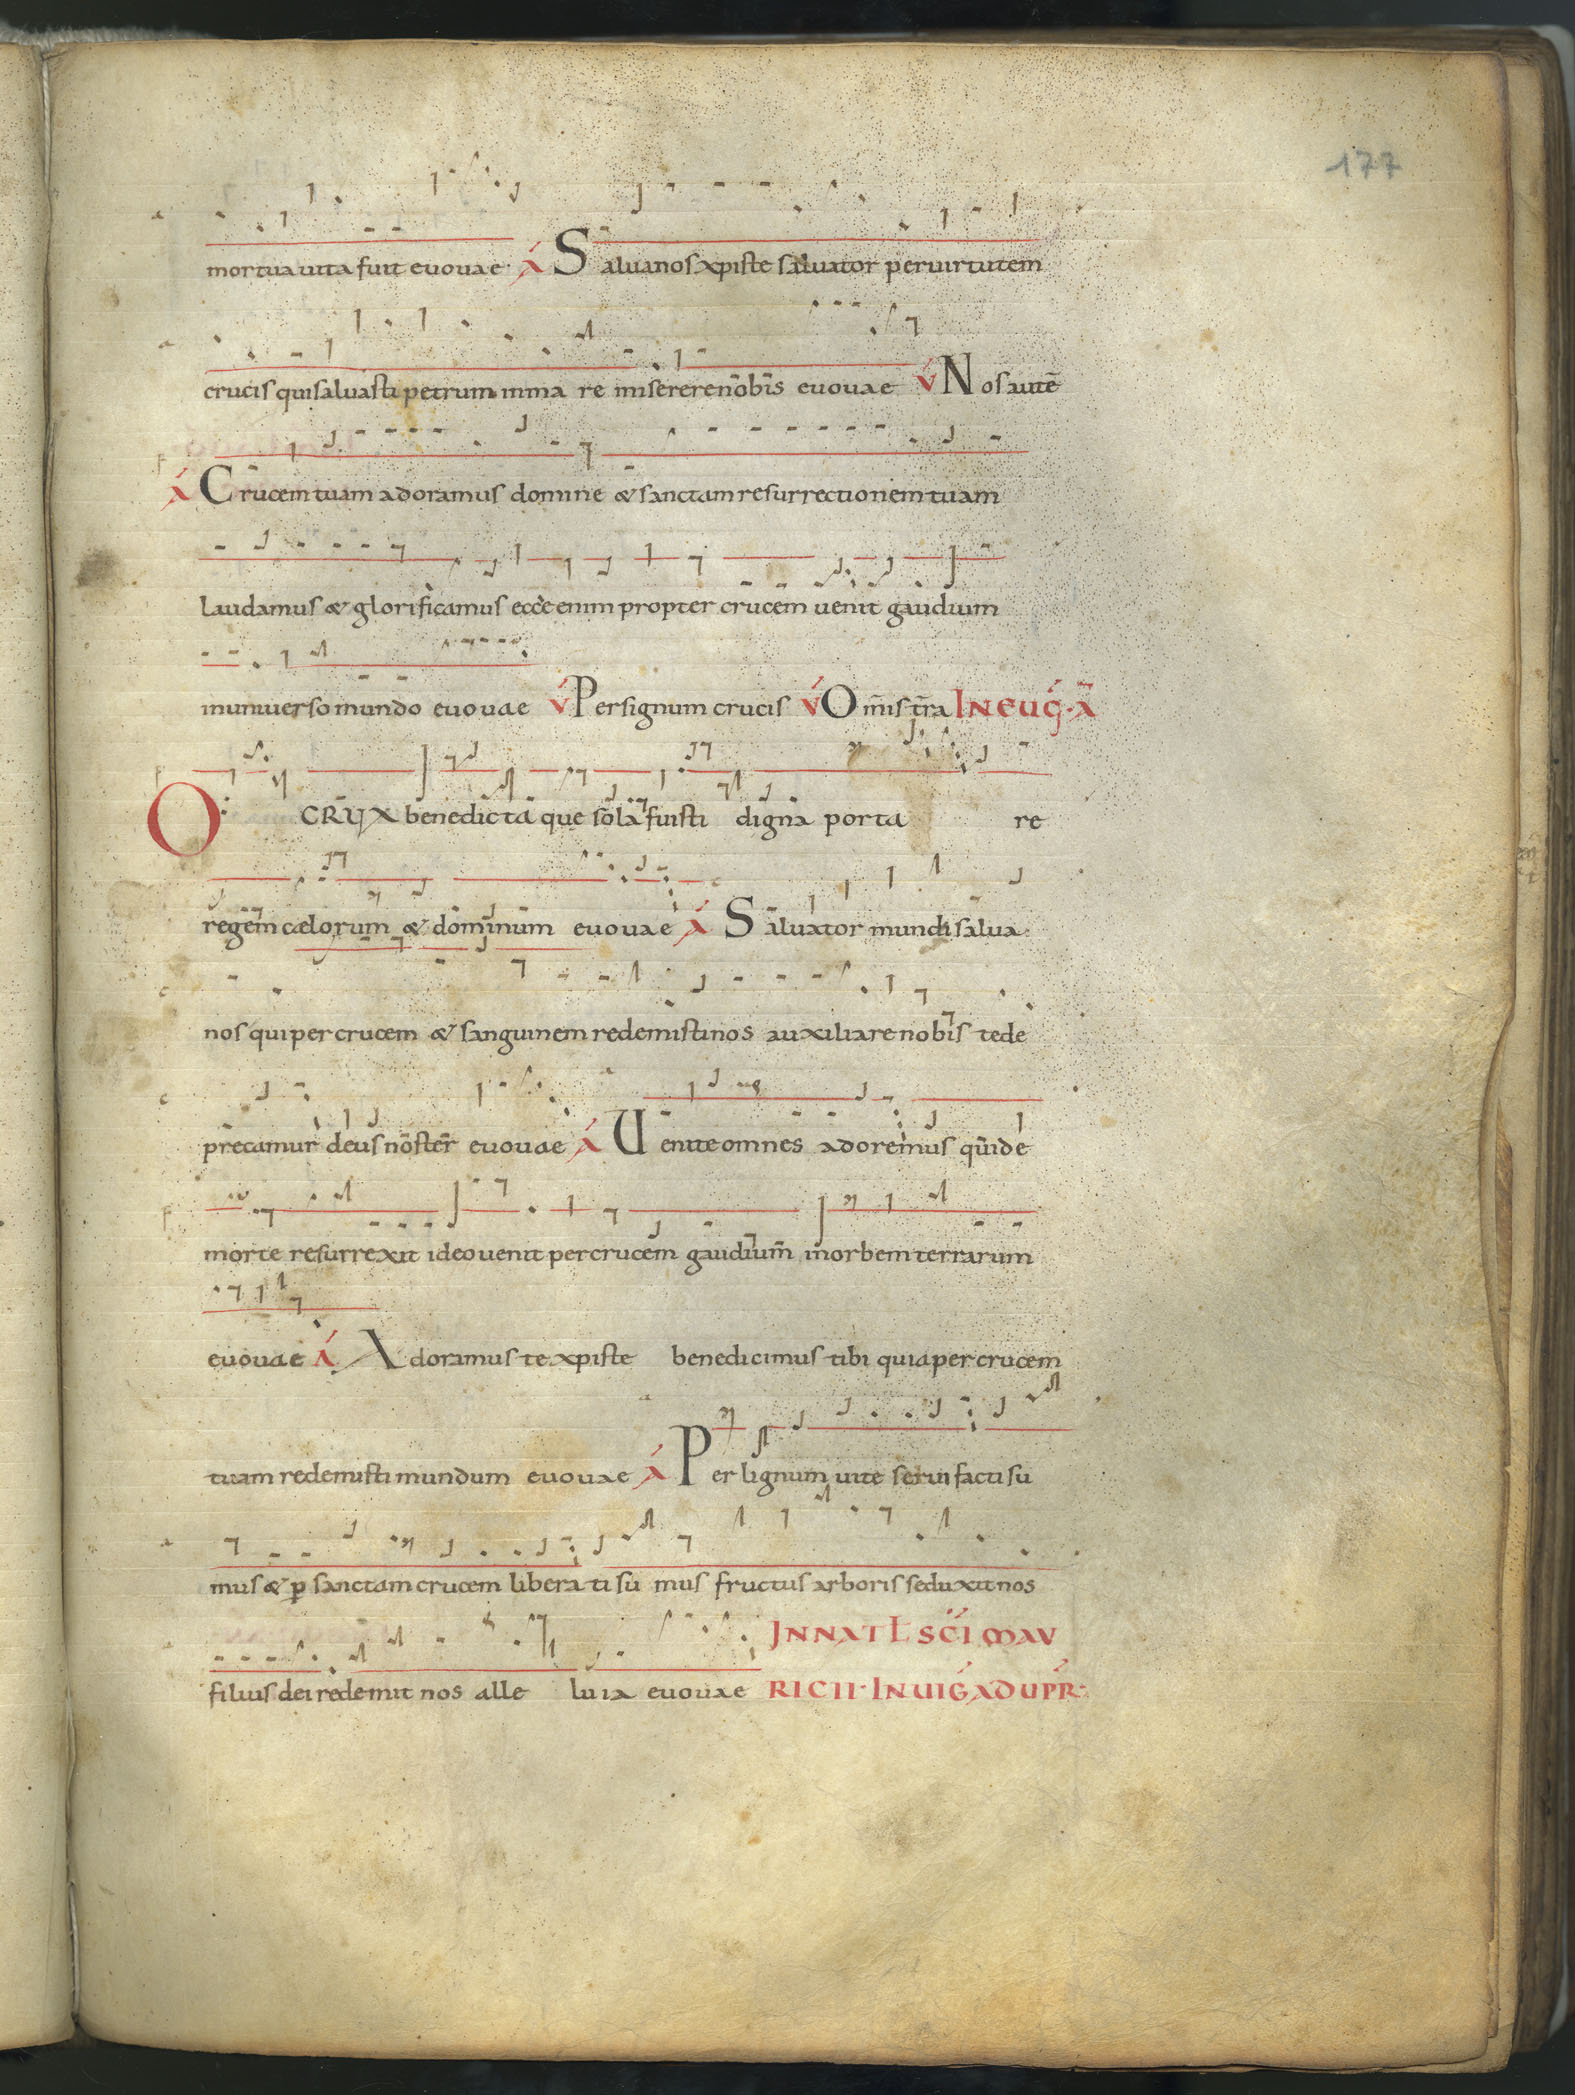 177
mortua uita fuit euouae A Salua nos xpiste saluator per uirtutem
crucis qui saluasti petrum in ma re miserere nobis euouae V Nos autē
A Crucem tuam adoramus domine & sanctam resurrectionem tuam
laudamus & glorificamus ecce enim propter crucem uenit gaudium
in uniuerso mundo euouae V Per signum crucis V Omīs tr̄a IN EUḠ. Ā
O CRUX benedicta que sola fuisti digna porta re
regem cælorum & dominum euouae A Saluator mundi salua
nos qui per crucem & sanguinem redemisti nos auxiliare nobis te de
precamur deus noster euouae A Uenite omnes adoremus qui de
morte resurrexit ideo uenit per crucem gaudium in orbem terrarum
euouae A Adoramus te xpiste benedicimus tibi quia per crucem
tuam redemisti mundum euouae A Per lignum uite serui facti su
mus & p̄ sanctam crucem libera ti su mus fructus arboris seduxit nos
filius dei redemit nos alle luia euouae
IN NATL SC̄I MAU
RICII. IN UIḠ AD UPR̄.